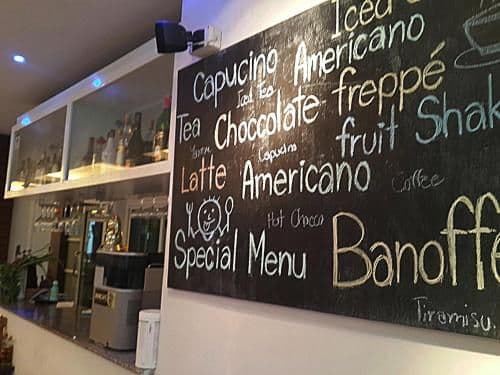 Iced
Capucino Americano
Iced Tea
Tea Choccolate freppé
fruit Shak
Capucino
Latte Americano Coffee
Hot Chocco
Special Menu Banoffe
Tiramisu.